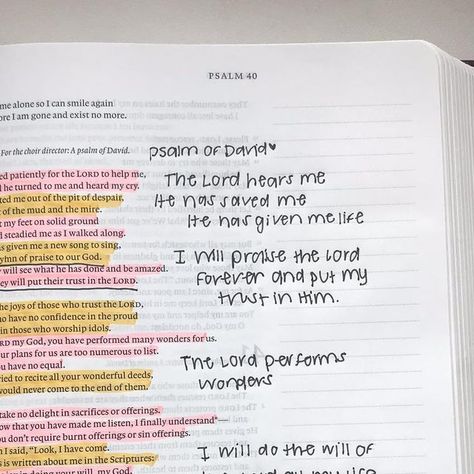 PSALM 40
me alone so I can smile again
ore I am gone and exist no more.
For the choir director: A psalm of David.
psalm of David♥
ed patiently for the LORD to help me,
d he turned to me and heard my cry.
ted me out of the pit of despair,
t of the mud and the mire.
t my feet on solid ground
d steadied me as I walked along.
s given me a new song to sing,
ymn of praise to our God.
y will see what he has done and be amazed.
ey will put their trust in the LORD.
The Lord hears me
He has saved me
He has given me life
I will praise the Lord
forever and put my
trust in Him.
the joys of those who trust the LORD,
o have no confidence in the proud
in those who worship idols.
RD my God, you have performed many wonders for us.
ur plans for us are too numerous to list.
u have no equal.
ried to recite all your wonderful deeds,
would never come to the end of them.
The Lord performs
wonders
take no delight in sacrifices or offerings.
ow that you have made me listen, I finally understand—
u don't require burnt offerings or sin offerings.
n I said, "Look, I have come.
is written about me in the Scriptures:
in doing your will, my God,
I will do the will of